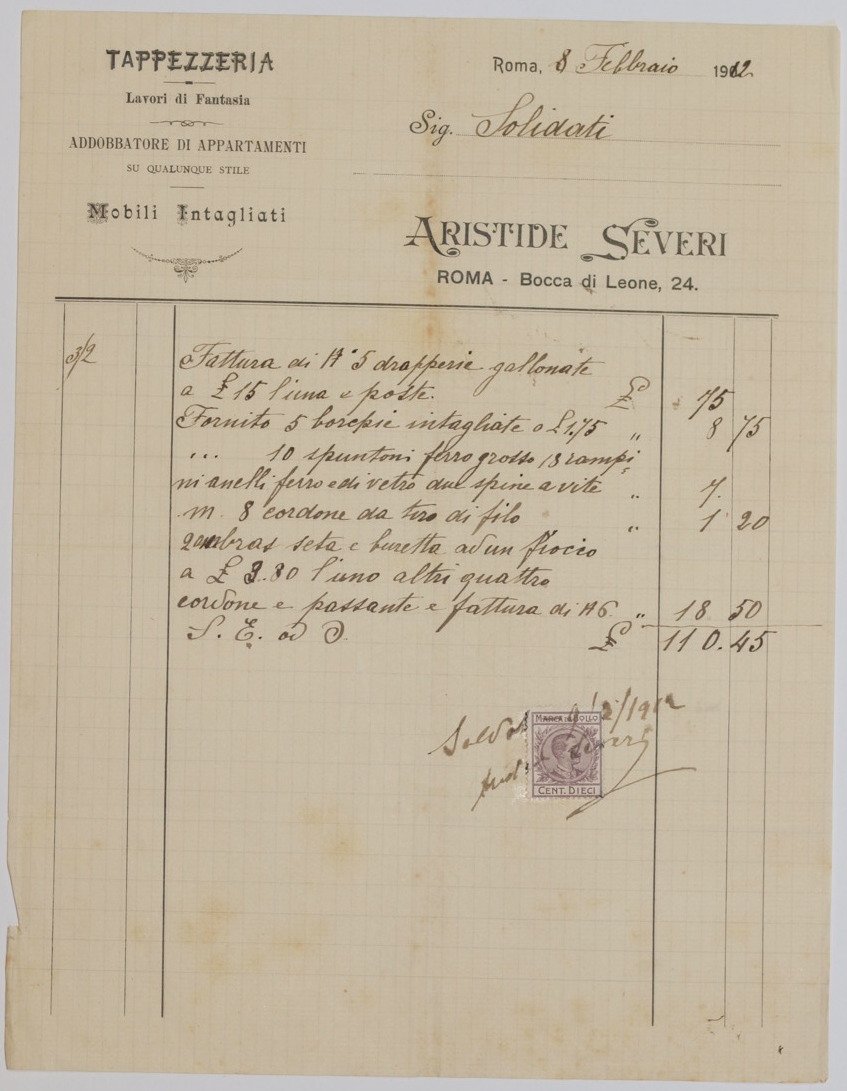 TAPPEZZERIA
Lavori di Fantasia
ADDOBBATORE DI APPARTAMENTI
SU QUALUNQUE STILE
Mobili Intagliati
Roma, 8 Febbraio 1912
Sig. Solidati
ARISTIDE SEVERI
ROMA - Bocca di Leone, 24.
3/2 Fattura di N° 5 drapperie gallonate
a £ 15 l'una e poste. £ 75
Fornito 5 intagliate a £ 1.75 " 8 75
" 10 spuntoni ferro grosso 18 rampi
ni anelli ferro e di vetro due spine a vite " 7.
m. 8 cordone da tiro di filo " 1 20
2 embras seta e buretta ad un fiocco
a £ 3.80 l'uno altri quattro
cordone e passante e fattura di N 6. " 18 50
S. E. od O. £ 110.45
/2/1912
Severi
MARCA DA BOLLO
CENT. DIECI